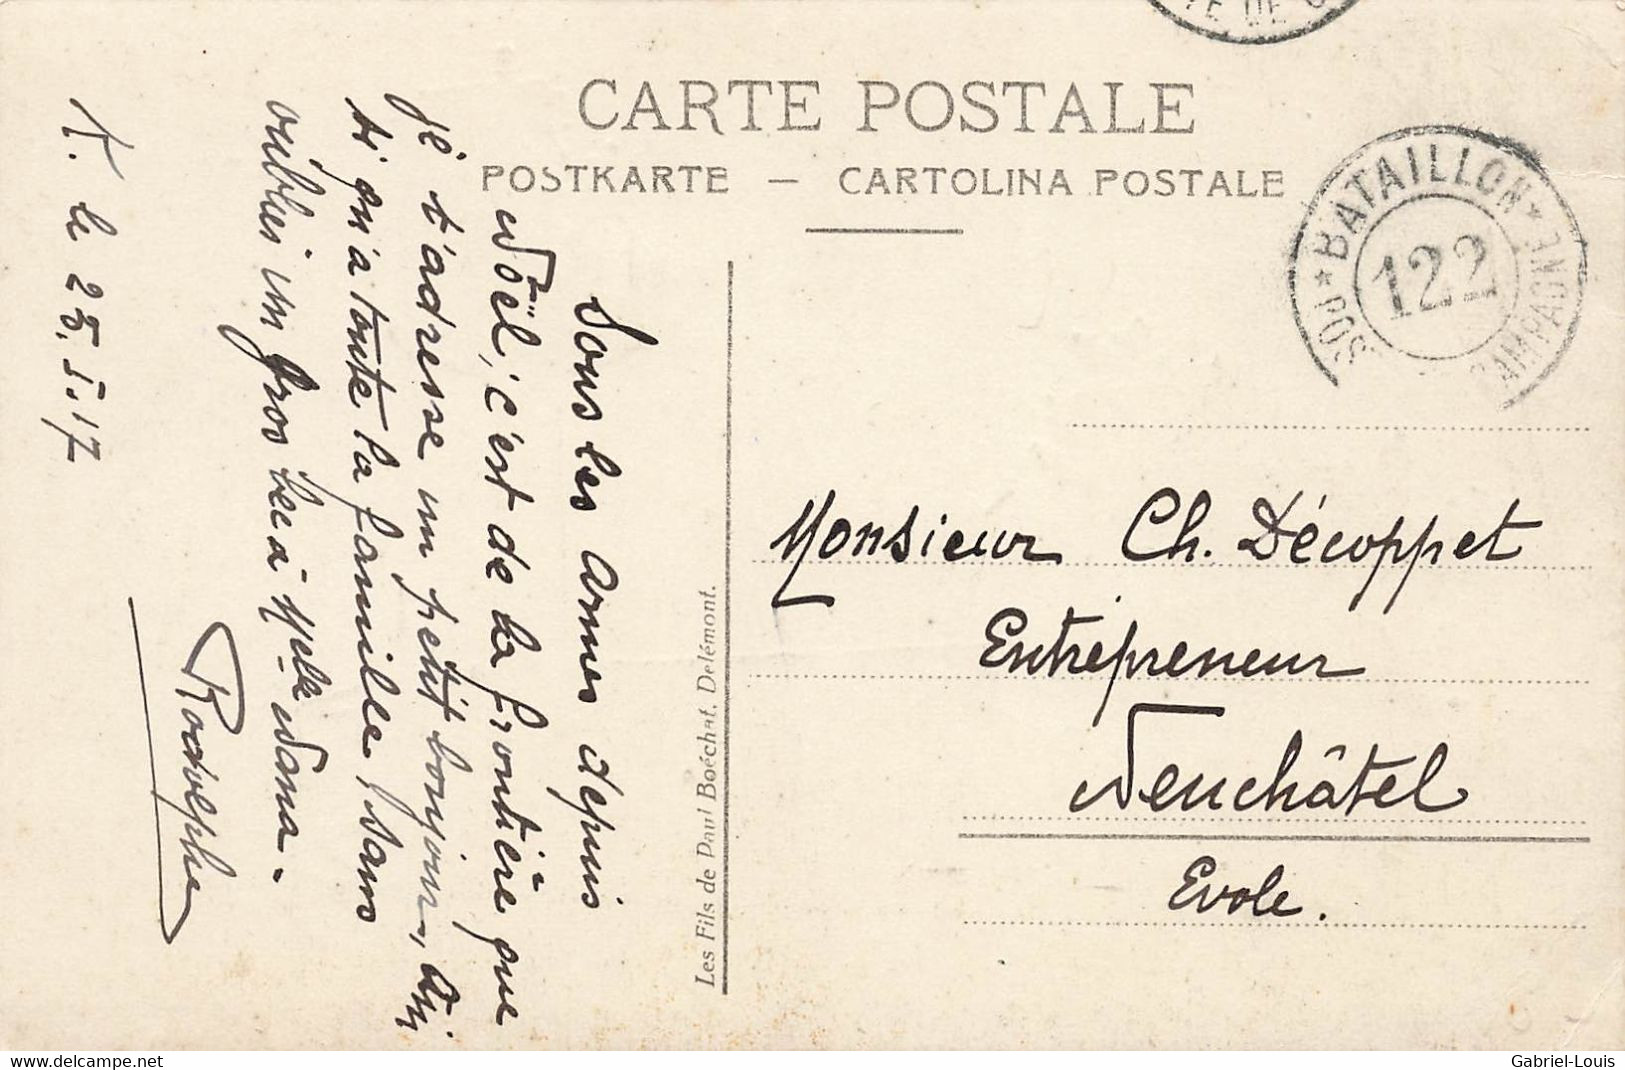 TE DE
CARTE POSTALE
POSTKARTE — CARTOLINA POSTALE
* BATAILLON *
122
Sous les armes depuis
Noël, c'est de la frontière que
je t'adresse un petit bonjour,
si qu'à toute la famille, sans
oublier un gros bec à Melle Nana.
Rodolphe
K. le 25.I.17
Les Fils de Paul Boéchat, Delémont.
Monsieur Ch. Décoppet
Entrepreneur
Neuchâtel
Evole.
www.delcampe.net
Gabriel-Louis